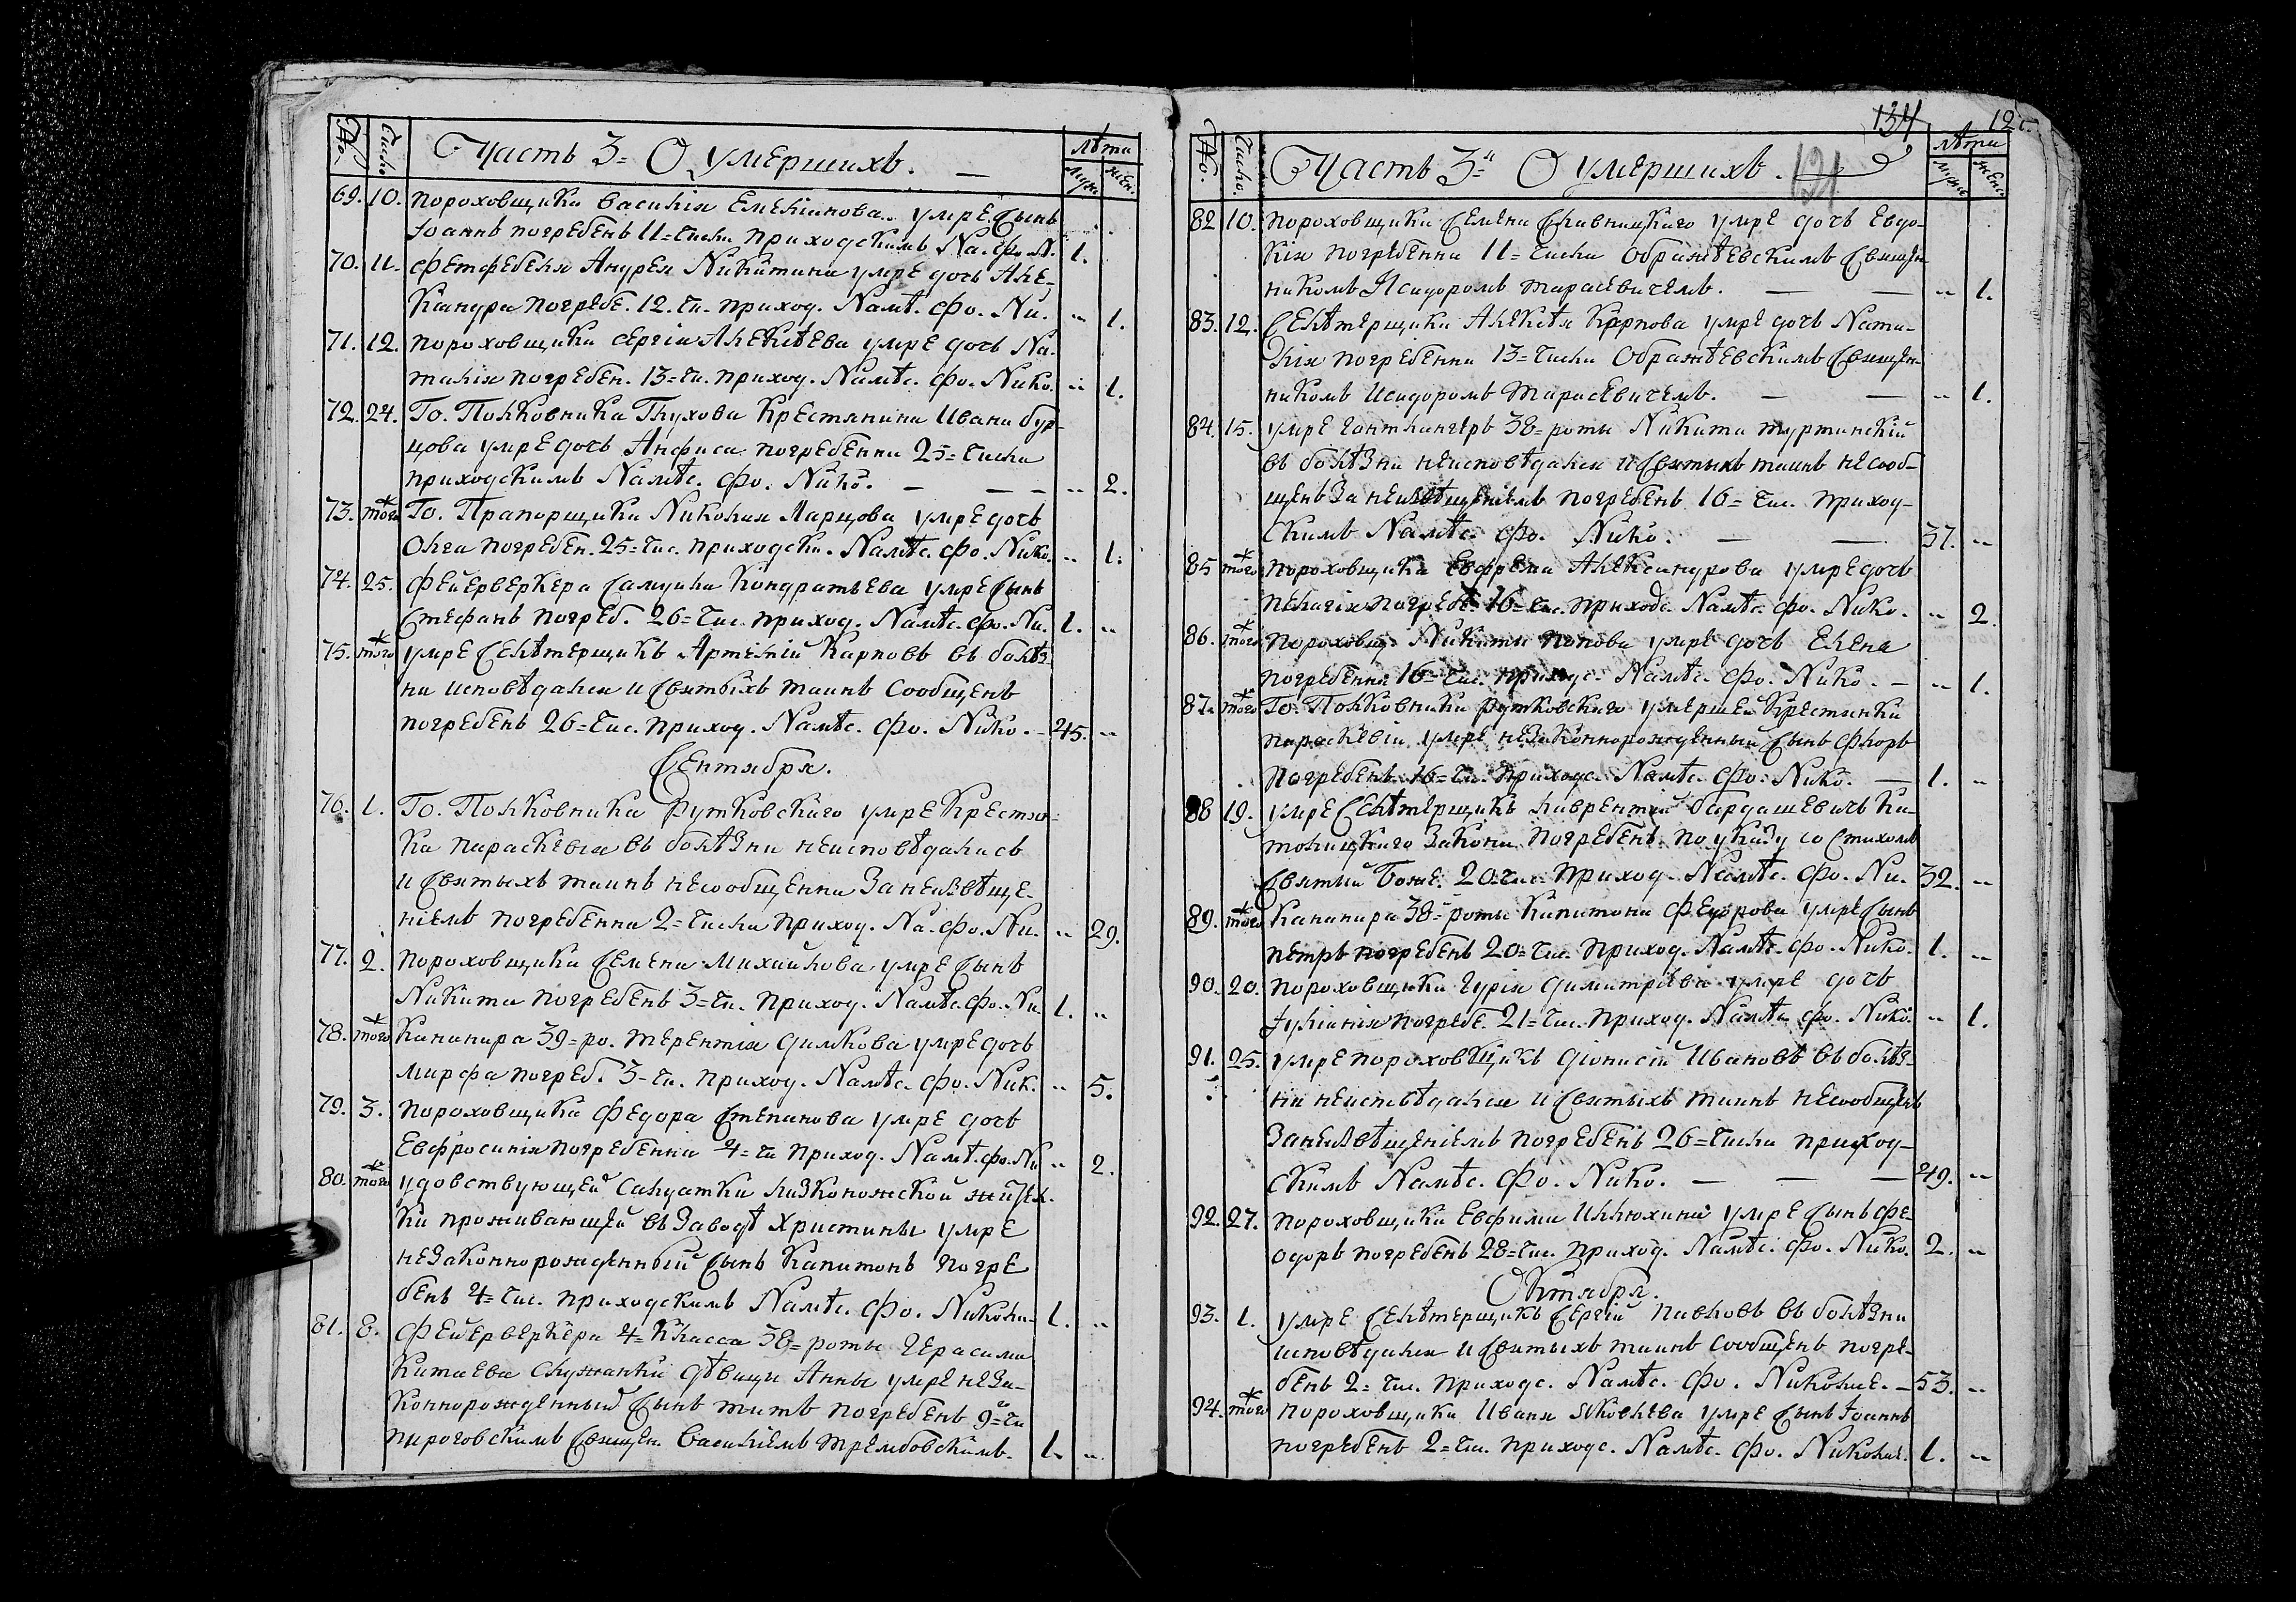 №. Число. Часть 3= О умершихъ. — лѣта муж. жен.
69. 10. Пороховщика Василія Емеліанова умре сынъ
Іоаннъ погребенъ 11= числа приходскимъ На. Ѳо. Н. 1.
70. 11. Фетфебеля Андрея Никитина умре дочь Але-
ксандра погребе. 12. чи. приход. Намѣ. Ѳо. Ни. .. 1.
71. 12. Пороховщика Сергія Алексѣева умре дочь На-
талія погребен. 13= чи. приход. Намѣс. Ѳо. Нико. .. 1.
72. 24. Го. Полковника Глухова крестянина Ивана Бур-
цова умре дочь Анфиса погребенна 25= числа
приходскимъ Намѣс. Ѳо. Нико. — — — .. 2.
73. того Го. Прапорщика Николая Ларцова умре дочь
Олга погребен. 25= чис. приходски. Намѣс. Ѳо. Нико. .. 1.
74. 25. Фейерверкера Самуила Кондратьева умре сынъ
Стефанъ погреб. 26= чис. приход. Намѣс. Ѳо. Ни. 1. ..
75. того умре селѣтерщикъ Артемій Карповъ въ болѣз-
ни исповѣдался и святыхъ таинъ сообщенъ
погребенъ 26= чис. приход. Намѣс. Ѳо. Нико. — 45. ..
Сентября.
76. 1. Го. Полковника Рутковскаго умре крестян-
ка Параскевія въ болѣзни неисповѣдалась
и святыхъ таинъ несообщенна за неизвѣще-
ніемъ погребенна 2= числа приход. На. Ѳо. Ни. .. 29.
77. 2. Пороховщика Семена Михайлова умре сынъ
Никита погребенъ 3= чи. приход. Намѣс. Ѳо. Ни. 1. ..
78. того Канонира 39= ро. Терентія Димкова умре дочь
Марфа погреб. 3= чи. приход. Намѣс. Ѳо. Ник. .. 5.
79. 3. Пороховщика Федора Степанова умре дочь
Евфросинія погребенна 4= чи приход. Намѣ. Ѳо. Ни .. 2.
80. того удовствующей салдатки низконожской жител.
ки проживающей въ заводѣ Христины умре
незаконнорожденный сынъ Капитонъ погре
бенъ 4= чис. приходскимъ Намѣс. Ѳо. Никола- 1. ..
81. 8. Фейерверкера 4= класса 38= роты Герасима
Китаева служанки дѣвицы Анны умре неза-
коннорожденный сынъ Титъ погребенъ 9= чи
Пироговскимъ Священ. Василіемъ Трембовскимъ. 1. ..
134 12
№. Число. Часть 3= О умершихъ. 121 лѣта муж. жен.
82 10. Пороховщика Семена Славницкаго умре дочь Евдо-
кія погребенна 11= числа Ображѣевскимъ Священ-
никомъ Исидоромъ Тарасевичемъ. — — .. 1.
83. 12. Селѣтерщика Алексѣя Карпова умре дочь Ната-
лія погребенна 13= числа Ображѣевскимъ Священ-
никомъ Исидоромъ Тарасевичемъ. — — .. 1.
84. 15. умре гантлангеръ 38= роты Никита Туртинскій
въ болѣзни неисповѣдался и святыхъ таинъ несооб-
щенъ за неизвѣщеніемъ погребенъ 16= чис. приход-
скимъ Намѣс. Ѳо. Нико. — — 37. ..
85 того Пороховщика Евфрема Александрова умре дочь
Пелагія погребе. 16= чис. приходс. Намѣс. Ѳо. Нико. .. 2.
86. того Пороховщ. Никиты Попова умре дочь Елена
погребенна 16= чис. приходс. Намѣс. Ѳо. Нико. — .. 1.
87. того Го. Полковника Рутковскаго умершей крестянки
Параскевіи умре незаконнорожденный сынъ Флоръ
погребенъ 16= чи. приходс. Намѣс. Ѳо. Нико. — 1. ..
88 19. умре селѣтерщикъ Лаврентій Бардашевичъ ка-
толицкаго закона погребенъ по указу со стихомъ
Святый Боже. 20= чис. приход. Намѣс. Ѳо. Ни. 32. ..
89. того Канонира 38= роты Капитона Федорова умре сынъ
Петръ погребенъ 20= чис. приход. Намѣс. Ѳо. Нико. 1. ..
90. 20. Пороховщика Гурія Димитріева умре дочь
Іуліанія погребе. 21= чис. приход. Намѣс. Ѳо. Нико. .. 1.
91. 25. умре пороховщикъ Діонисій Ивановъ въ болѣз-
ни неисповѣдался и святыхъ таинъ несообщенъ
за неизвѣщеніемъ погребенъ 26= числа приход-
скимъ Намѣс. Ѳо. Нико. — — — 49. ..
92. 27. Пороховщика Евфима Иллюхина умре сынъ Фе-
одоръ погребенъ 28= чис. приход. Намѣс. Ѳо. Нико. 2. ..
Октября.
93. 1. умре селѣтерщикъ Сергій Павловъ въ болѣзни
исповѣдался и святыхъ таинъ сообщенъ погре-
бенъ 2= чис. приходс. Намѣс. Ѳо. Николае. — 53. ..
94. того Пороховщика Ивана Яковлева умре сынъ Іоаннъ
погребенъ 2= чис. приходс. Намѣс. Ѳо. Николае. 1. ..